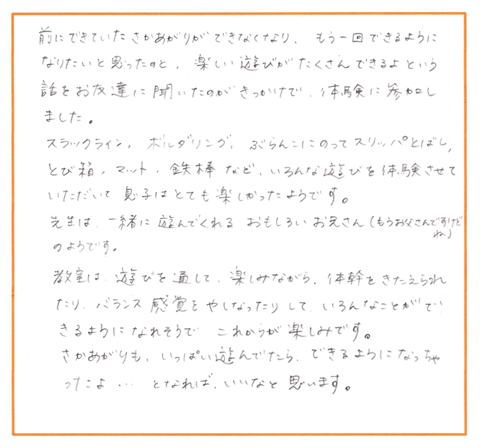 前にできていたさかあがりができなくなり、もう一回できるように
なりたいと思ったのと、楽しい遊びがたくさんできるよという
話をお友達に聞いたのがきっかけで、体験に参加し
ました。
スラックライン、ボルダリング、ぶらんこにのってスリッパとばし、
とび箱、マット、鉄棒など、いろんな遊びを体験させて
いただいて息子はとても楽しかったようです。
先生は、一緒に遊んでくれるおもしろいお兄さん(もうお父さんですけどね)
のようです。
教室は、遊びを通して、楽しみながら、体幹をきたえられ
たり、バランス感覚をやしなったりして、いろんなことがで
きるようになれそうで これからが楽しみです。
さかあがりも、いっぱい遊んでたら、できるようになっちゃ
ったよ… となれば、いいなと思います。